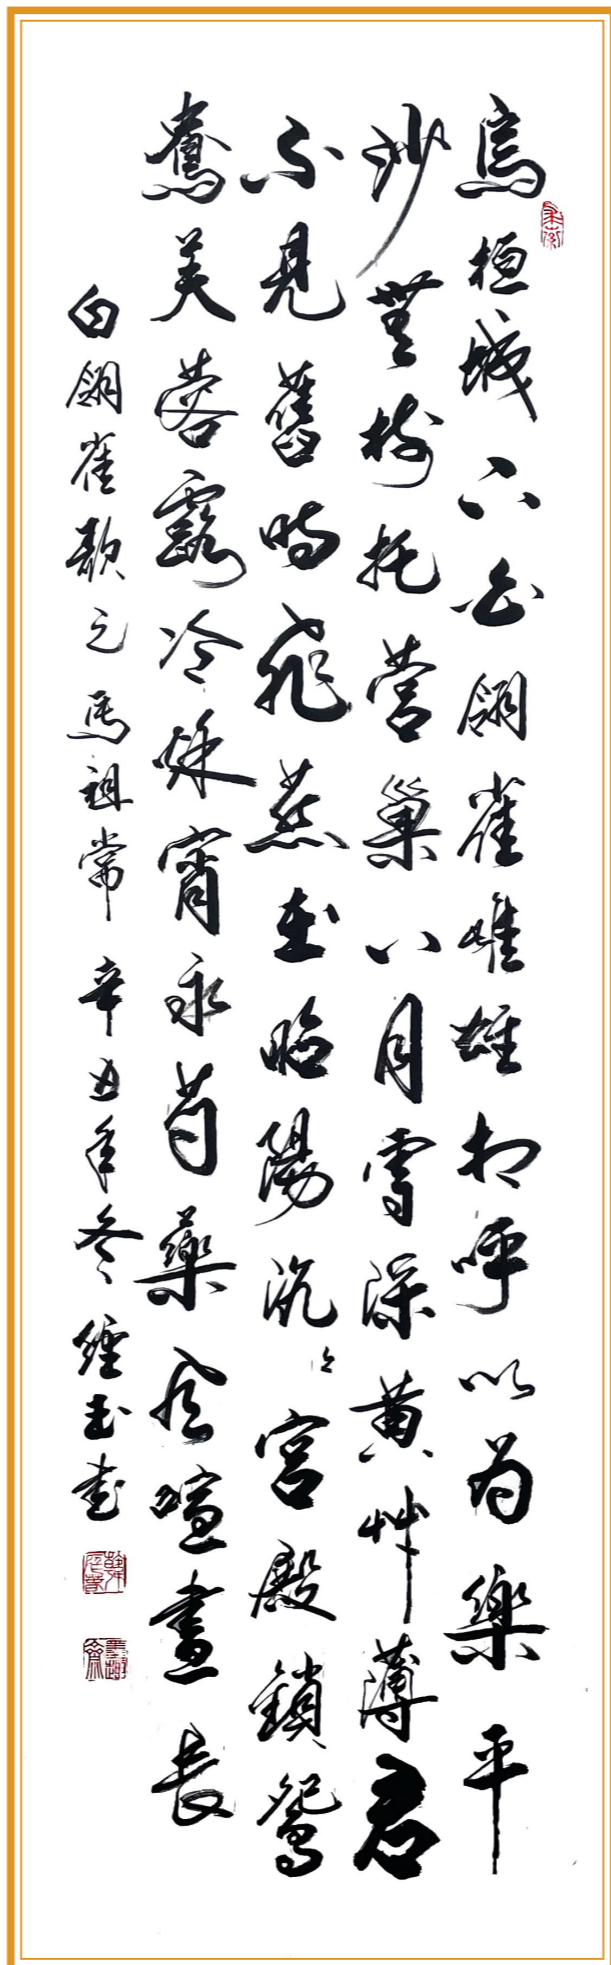 烏桓城下白翎雀雌雄相呼以為樂平
沙無樹托營巢八月雪深黄艸薄君
不見舊時飛燕在昭陽沉々宮殿鎖鴛
鴦芙蓉露冷秋宵永芍藥風喧晝長
白翎雀歌元馬祖常辛丑年冬經玉書